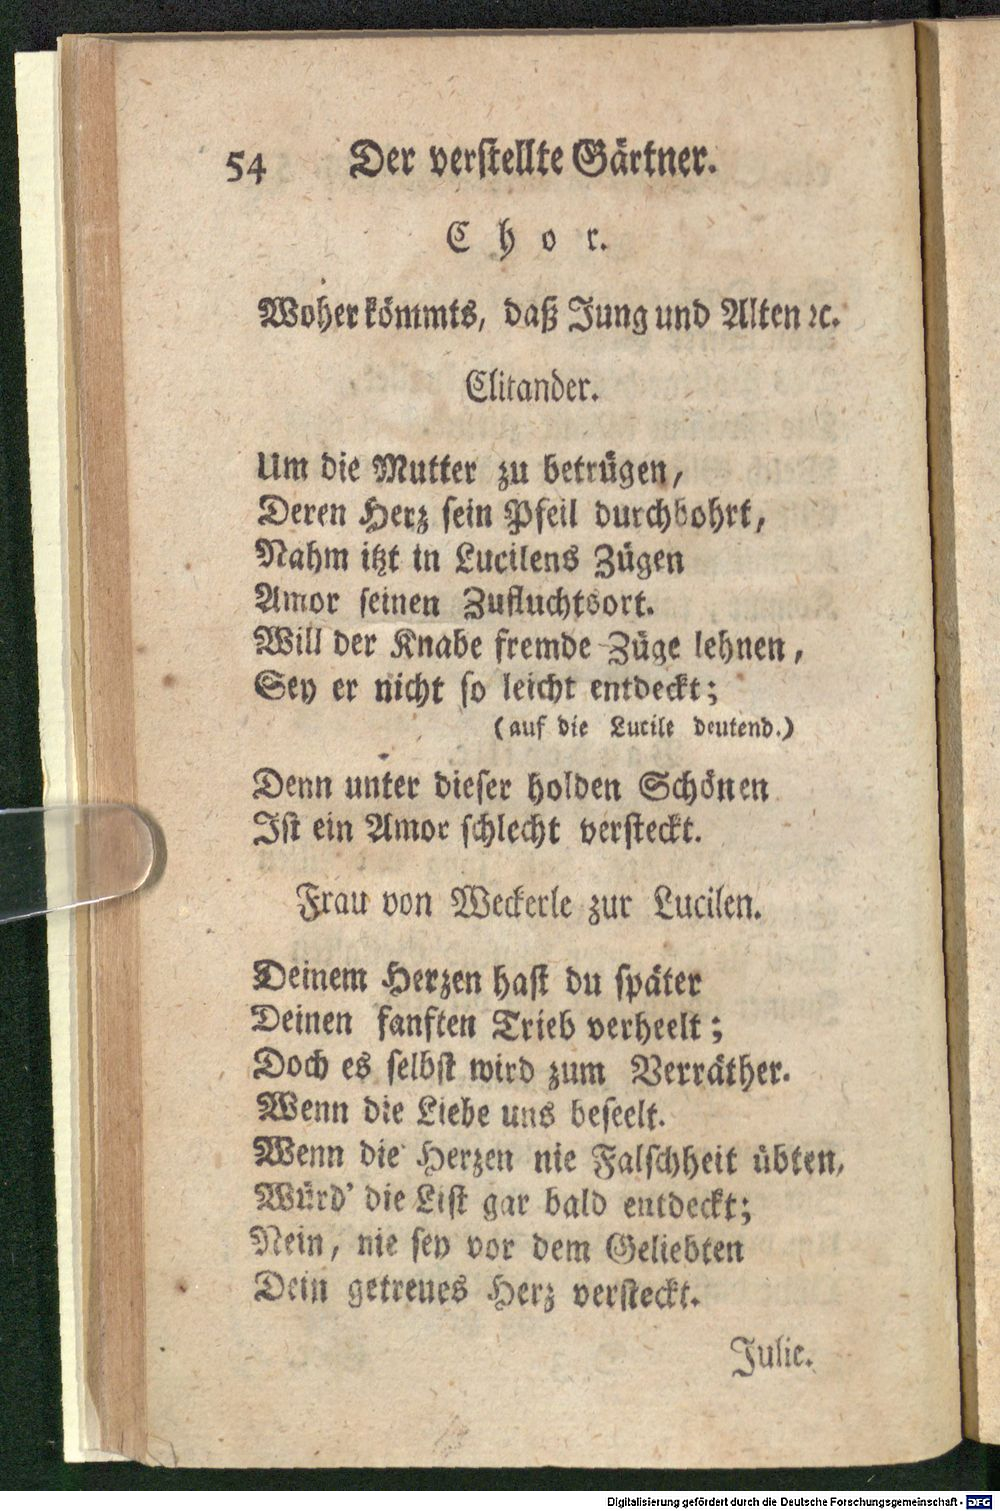 54 Der verstellte Gärtner.
Chor.
Woher kömmts, daß Jung und Alten ꝛc.
Clitander.
Um die Mutter zu betrügen,
Deren Herz sein Pfeil durchbohrt,
Nahm itzt in Lucilens Zügen
Amor seinen Zufluchtsort.
Will der Knabe fremde Züge lehnen,
Sey er nicht so leicht entdeckt;
(auf die Lucile deutend.)
Denn unter dieser holden Schönen
Ist ein Amor schlecht versteckt.
Frau von Weckerle zur Lucilen.
Deinem Herzen hast du später
Deinen sanften Trieb verheelt;
Doch es selbst wird zum Verräther.
Wenn die Liebe uns beseelt.
Wenn die Herzen nie Falschheit übten,
Würd' die List gar bald entdeckt;
Nein, nie sey vor dem Geliebten
Dein getreues Herz versteckt.
Julie.
Digitalisierung gefördert durch die Deutsche Forschungsgemeinschaft - DFG